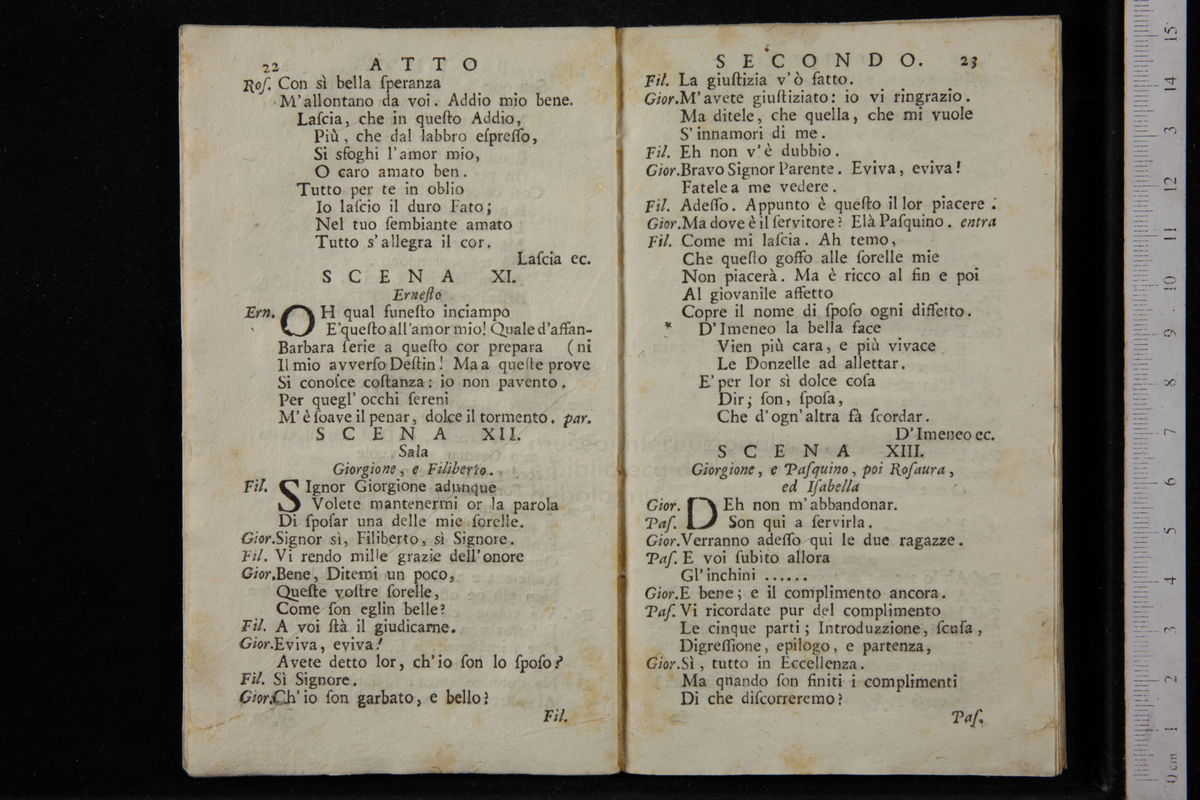 22 ATTO
Roſ. Con sì bella ſperanza
M'allontano da voi. Addio mio bene.
Laſcia, che in queſto Addio,
Più, che dal labbro eſpreſſo,
Si sfoghi l'amor mio,
O caro amato ben.
Tutto per te in oblio
Io laſcio il duro Fato;
Nel tuo ſembiante amato
Tutto s'allegra il cor.
Laſcia ec.
SCENA XI.
Erneſto
Ern. OH qual funeſto inciampo
E'queſto all'amor mio! Quale d'affan-
Barbara ſerie a queſto cor prepara (ni
Il mio avverſo Deſtin! Ma a queſte prove
Si conoſce coſtanza: io non pavento.
Per quegl' occhi ſereni
M'è ſoave il penar, dolce il tormento. par.
SCENA XII.
Sala
Giorgione, e Filiberto.
Fil. SIgnor Giorgione adunque
Volete mantenermi or la parola
Di ſpoſar una delle mie ſorelle.
Gior. Signor sì, Filiberto, sì Signore.
Fil. Vi rendo mille grazie dell'onore
Gior. Bene, Ditemi un poco,
Queſte voſtre ſorelle,
Come ſon eglin belle?
Fil. A voi ſtà il giudicarne.
Gior. Eviva, eviva!
Avete detto lor, ch'io ſon lo ſpoſo?
Fil. Sì Signore.
Gior. Ch'io ſon garbato, e bello?
Fil.
SECONDO. 23
Fil. La giuſtizia v'ò fatto.
Gior. M'avete giuſtiziato: io vi ringrazio.
Ma ditele, che quella, che mi vuole
S'innamori di me.
Fil. Eh non v'è dubbio.
Gior. Bravo Signor Parente. Eviva, eviva!
Fatele a me vedere.
Fil. Adeſſo. Appunto è queſto il lor piacere.
Gior. Ma dove è il ſervitore? Elà Paſquino. entra
Fil. Come mi laſcia. Ah temo,
Che queſto goffo alle ſorelle mie
Non piacerà. Ma è ricco al fin e poi
Al giovanile affetto
Copre il nome di ſpoſo ogni diffetto.
* D'Imeneo la bella face
Vien più cara, e più vivace
Le Donzelle ad allettar.
E' per lor sì dolce coſa
Dir; ſon, ſpoſa,
Che d'ogn'altra fà ſcordar.
D'Imeneo ec.
SCENA XIII.
Giorgione, e Paſquino, poi Roſaura,
ed Iſabella
Gior. DEh non m'abbandonar.
Paſ. Son qui a ſervirla.
Gior. Verranno adeſſo qui le due ragazze.
Paſ. E voi ſubito allora
Gl'inchini ......
Gior. E bene; e il complimento ancora.
Paſ. Vi ricordate pur del complimento
Le cinque parti; Introduzzione, ſcuſa,
Digreſſione, epilogo, e partenza,
Gior. Sì, tutto in Eccellenza.
Ma qnando ſon finiti i complimenti
Di che diſcorreremo?
Paſ.
0 cm 1 2 3 4 5 6 7 8 9 10 11 12 13 14 15